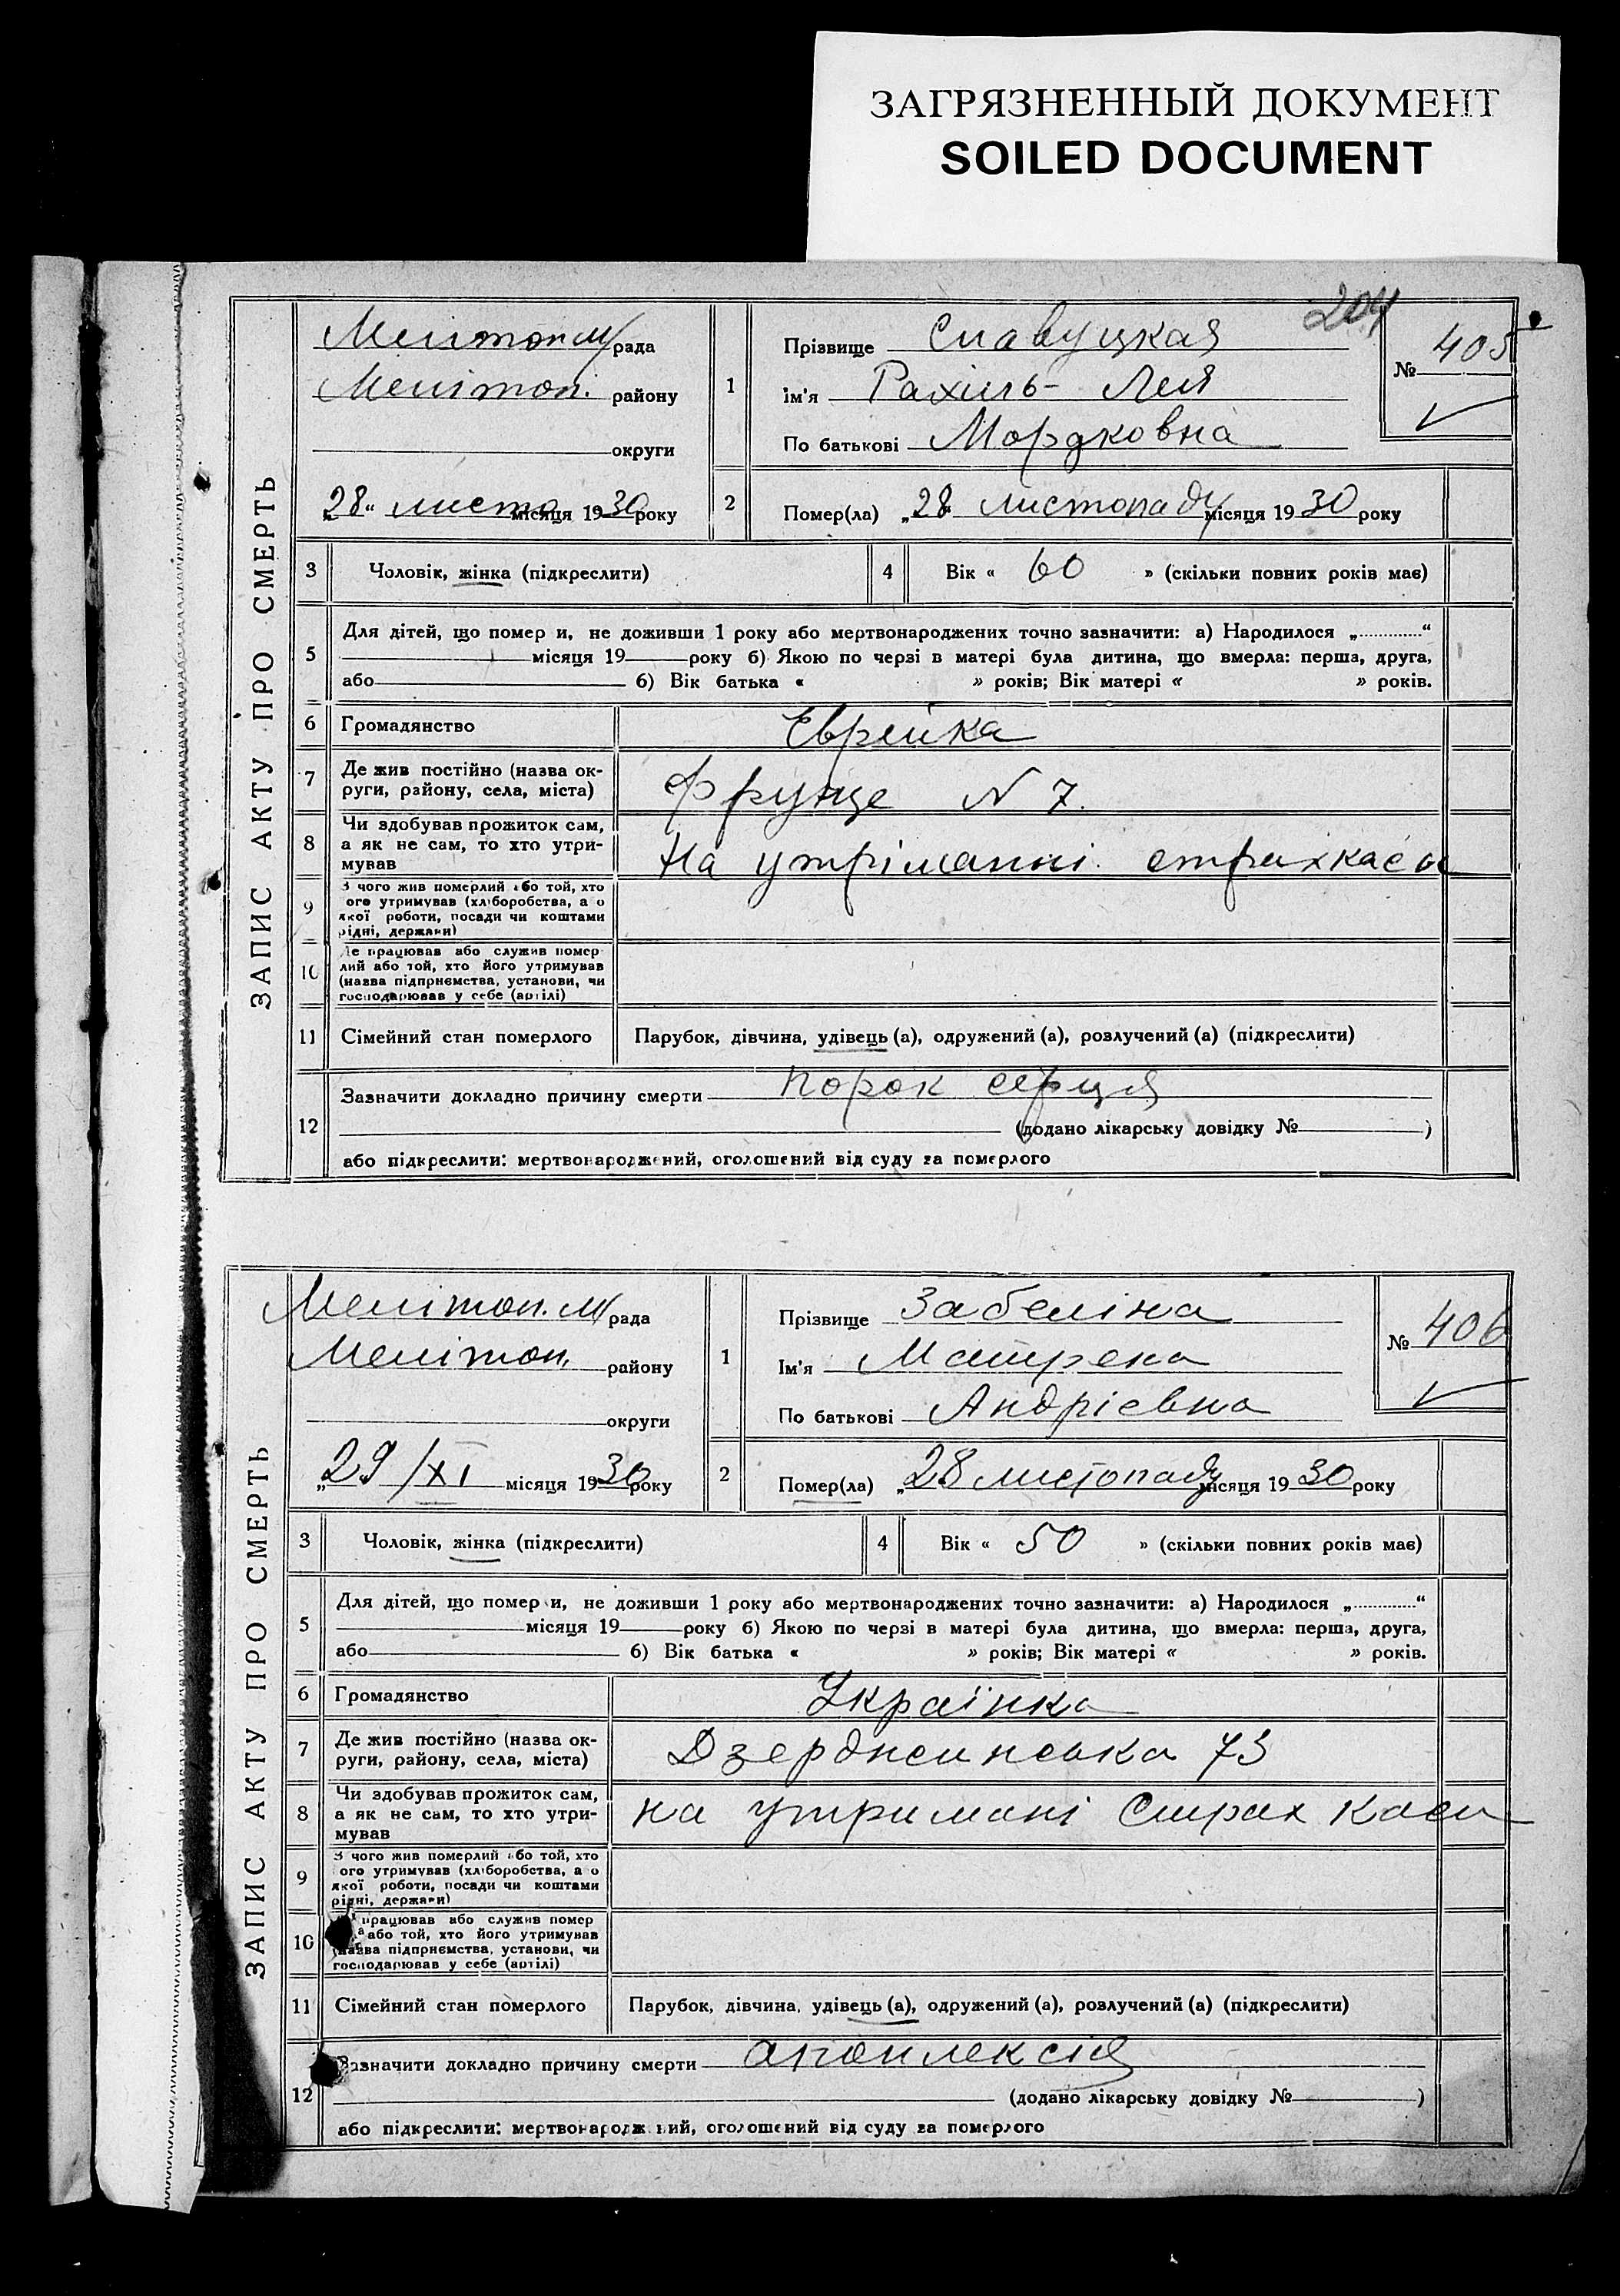 ЗАГРЯЗНЕННЫЙ ДОКУМЕНТ
SOILED DOCUMENT
204
ЗАПИС АКТУ ПРО СМЕРТЬ
Мелітоп м/рада
Мелітоп. району
округи
„28“ листо місяця 1930 року
1
Прізвище Славуцкая
Ім'я Рахиль-Лея
По батькові Мордковна
№ 405
2
Помер(ла) „28 листопаду місяця 1930 року
3 Чоловік, жінка (підкреслити)
4 Вік « 60 » (скільки повних років має)
5
Для дітей, що помер и, не доживши 1 року або мертвонароджених точно зазначити: а) Народилося „............“
місяця 19 року б) Якою по черзі в матері була дитина, що вмерла: перша, друга,
або б) Вік батька « » років; Вік матері « » років.
6 Громадянство Еврейка
7 Де жив постійно (назва ок-
руги, району, села, міста)
Фрунце N 7.
8 Чи здобував прожиток сам,
а як не сам, то хто утри-
мував
На утріманні страхкаси
9 З чого жив померлий або той, хто
ого утримував (хліборобства, а о
якої роботи, посади чи коштами
рідні, держави)
10 Де працював або служив помер
лий або той, хто його утримував
(назва підприємства, установи, чи
господарював у себе (артілі)
11 Сімейний стан померлого Парубок, дівчина, удівець (а), одружений (а), розлучений (а) (підкреслити)
12 Зазначити докладно причину смерти порок серця
(додано лікарську довідку № )
або підкреслити: мертвонароджений, оголошений від суду за померлого
ЗАПИС АКТУ ПРО СМЕРТЬ
Мелітоп. м/рада
Мелітоп. району
округи
„29/XI місяця 1930 року
1
Прізвище Забеліна
Ім'я Матрена
По батькові Андрієвна
№ 406
2
Помер(ла) „28 листопаду місяця 1930 року
3 Чоловік, жінка (підкреслити)
4 Вік « 50 » (скільки повних років має)
5
Для дітей, що помер и, не доживши 1 року або мертвонароджених точно зазначити: а) Народилося „............“
місяця 19 року б) Якою по черзі в матері була дитина, що вмерла: перша, друга,
або б) Вік батька « » років; Вік матері « » років.
6 Громадянство Українка
7 Де жив постійно (назва ок-
руги, району, села, міста)
Дзержинська 73
8 Чи здобував прожиток сам,
а як не сам, то хто утри-
мував
на утримані Страх каси
9 З чого жив померлий або той, хто
ого утримував (хліборобства, а о
якої роботи, посади чи коштами
рідні, держави)
10 працював або служив помер
або той, хто його утримував
(назва підприємства, установи, чи
господарював у себе (артілі)
11 Сімейний стан померлого Парубок, дівчина, удівець (а), одружений (а), розлучений (а) (підкреслити)
12 Зазначити докладно причину смерти апоплексія
(додано лікарську довідку № )
або підкреслити: мертвонароджений, оголошений від суду за померлого